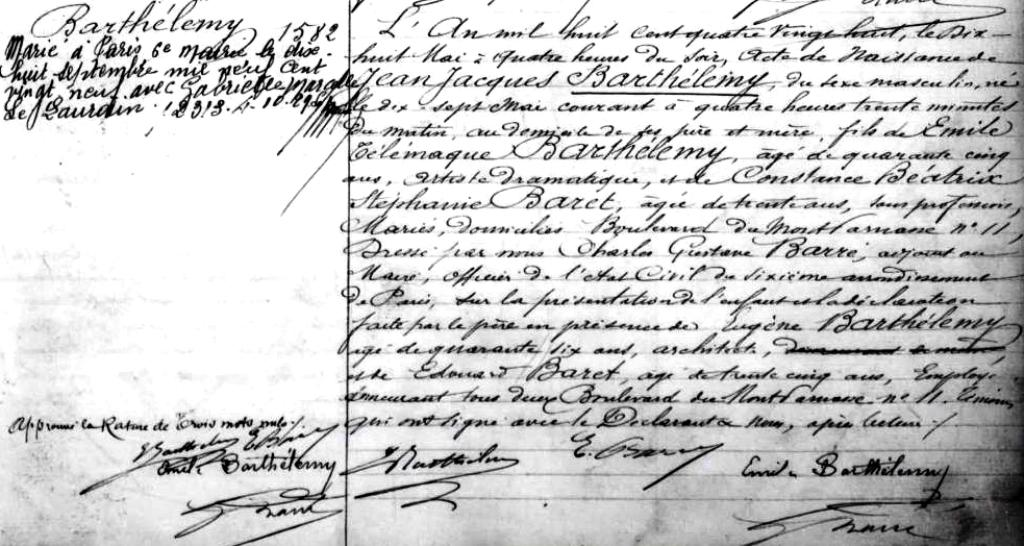 Barthélemy 1582
Marié à Paris 6e mairie le dix-
huit septembre mil neuf cent
vingt neuf avec Gabrielle
de
L'An mil huit cent quatre vingt huit, le Dix-
huit Mai à quatre heures du soir, Acte de Naissance de
Jean Jacques Barthélemy, du sexe masculin, né
le dix sept Mai courant à quatre heures trente minutes
du matin, au domicile de ses père et mère, fils de Emile
Télémaque Barthélemy, âgé de quarante cinq
ans, Artiste dramatique, et de Constance Béatrix
Stéphanie Baret, âgée de trente ans, sans profession,
Mariés, domiciliés Boulevard du Montparnasse no 11,
Dressé par nous Charles Gustave Barré, adjoint au
Maire, Officier de l'Etat Civil du sixième arrondissement
de Paris, sur la présentation de l'enfant et la déclaration
faite par le père en présence de Eugène Barthélemy
âgé de quarante six ans, architecte,
et de Edouard Baret, âgé de trente cinq ans, Employé
demeurant tous deux Boulevard du Montparnasse no 11, témoins
qui ont signé avec le Déclarant & Nous, après lecture ./.
Approuvé la Rature de Trois mots nuls ./.
Emile Barthélemy
Barré
Barthélemy E. Baret Emile Barthélemy
Barré